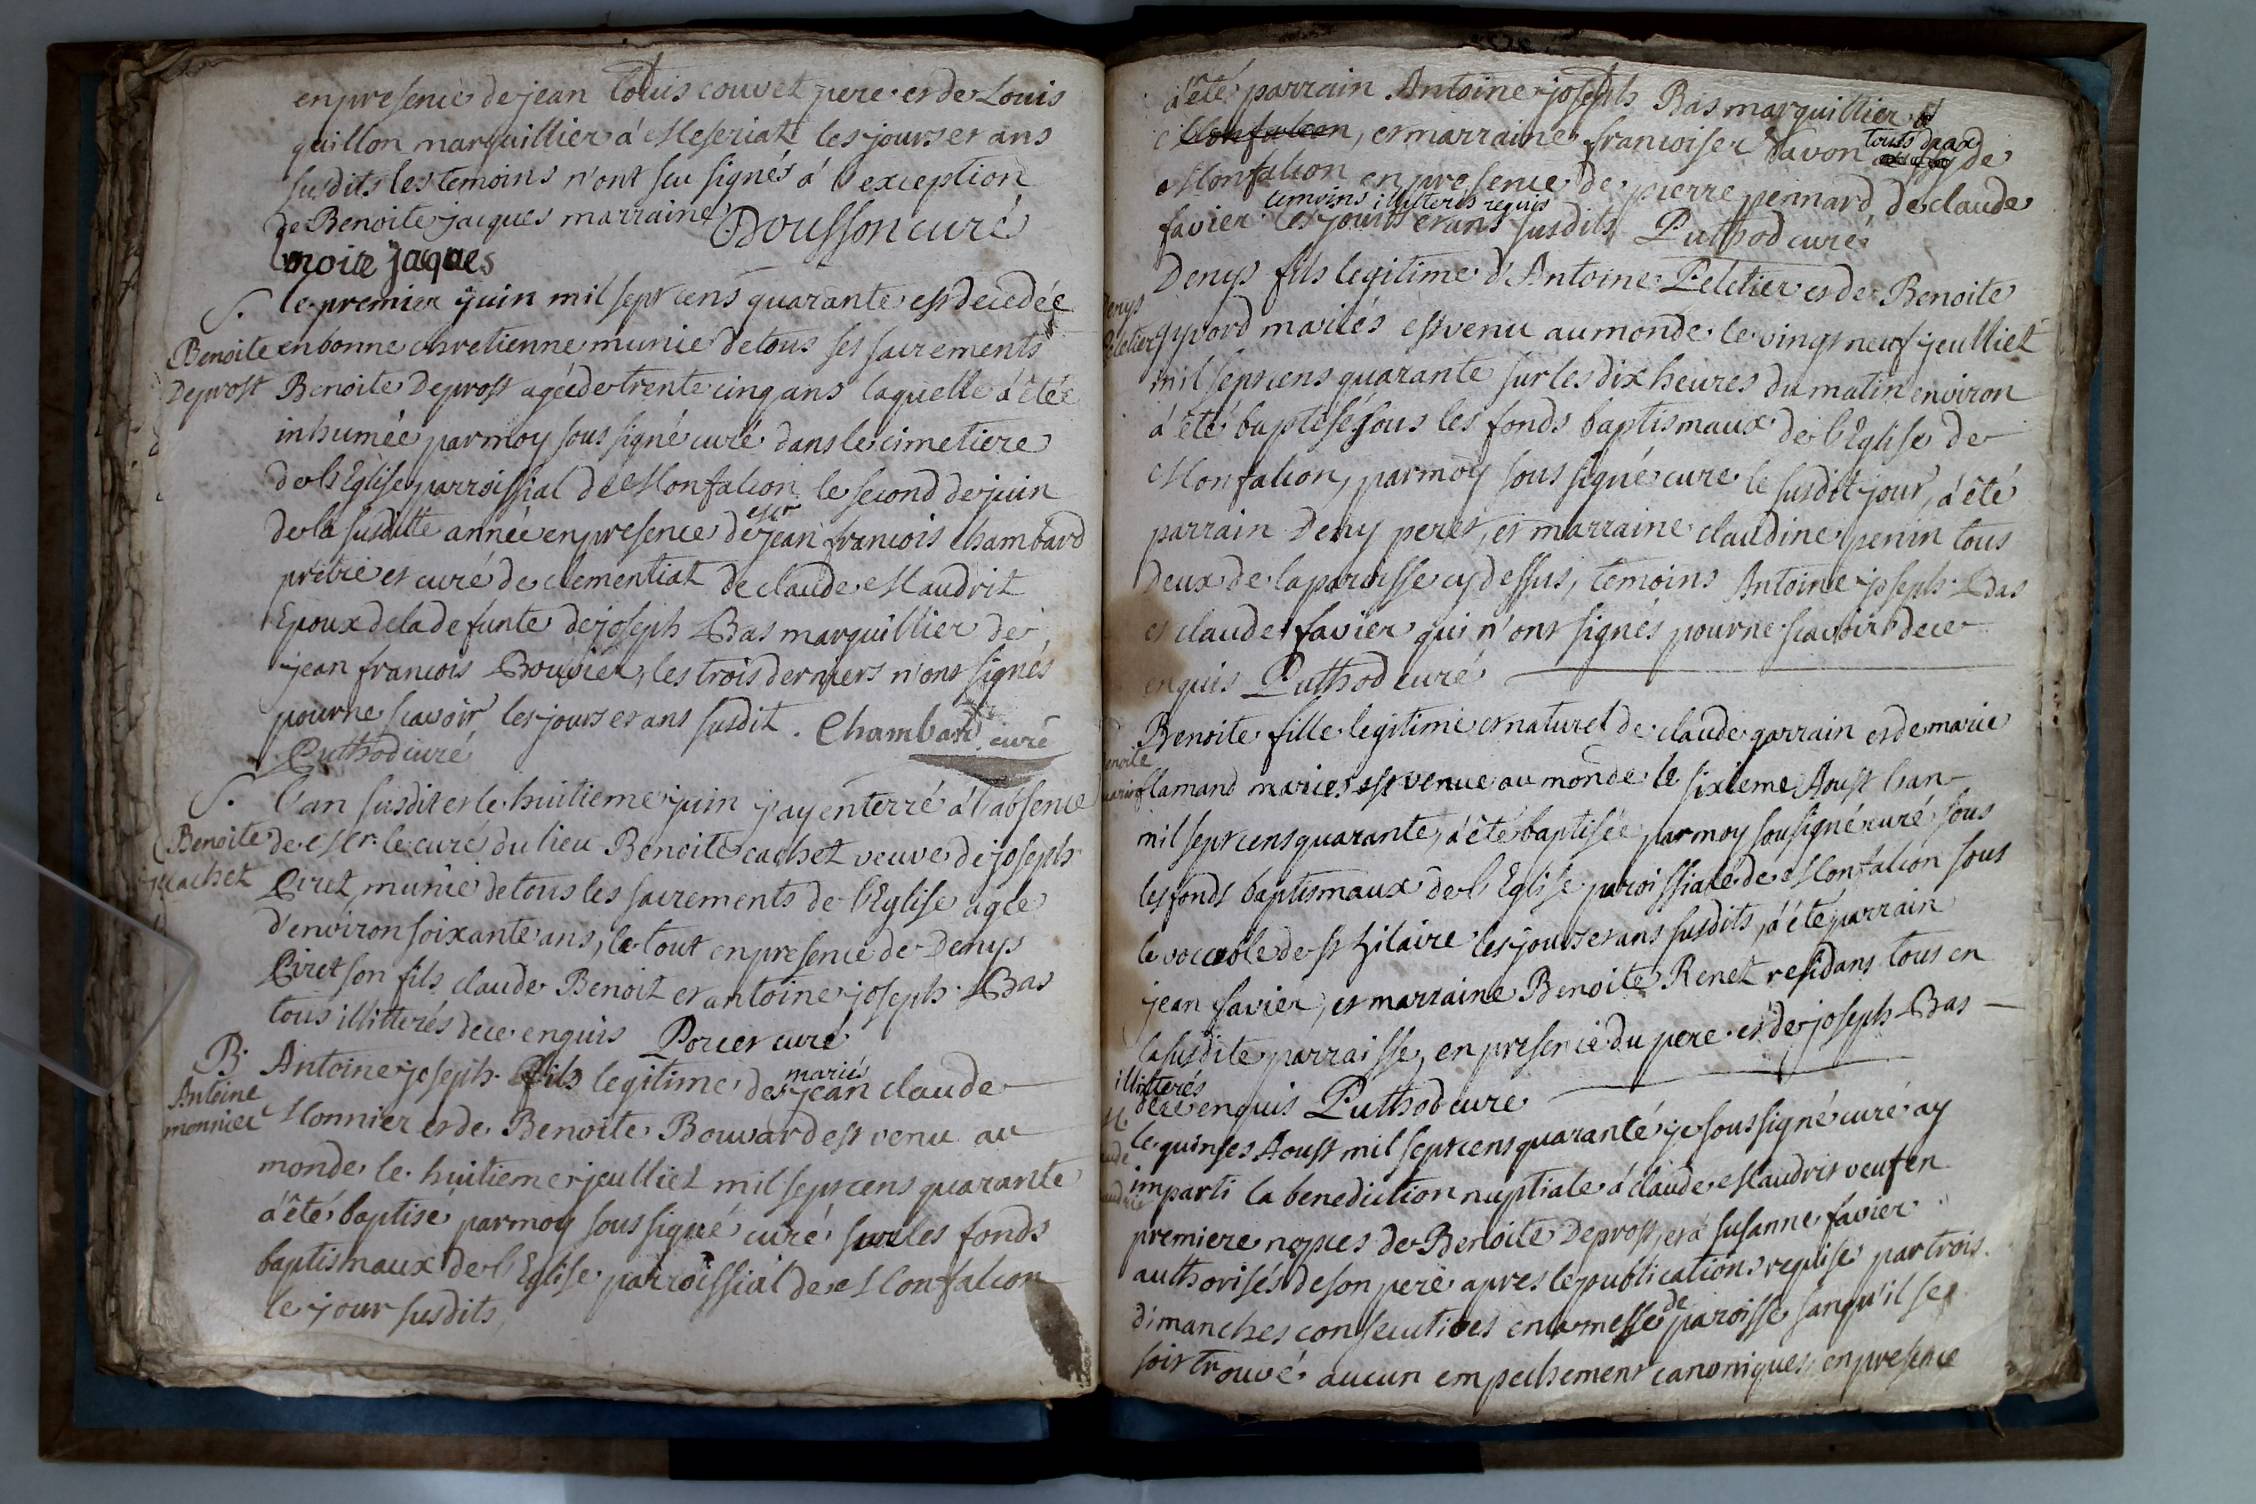 en presence de jean louis couvet pere et de Louis
guillon marguillier á Meseriat les jours et ans
susdits les temoins n'ont seu signés á l'exception
de Benoite jacques marraine Dousson curé
benoite jaques
S. le premier juin mil sept cens quarante est decedée
Benoite Deprost
en bonne chretienne munie de tous ses sacrements
Benoite Deprost agée de trente cinq ans laquelle á étée
inhumée par moy sous signé curé dans le cimetiere
de l'Eglise parroissial de Monfalcon le second de juin
de la susditte année en presence de jean francois chambard
prêtre et curé de clementiat de claude Maudrit
Epoux de la defunte de joseph Bas marguillier de
jean francois Bouvier, les trois derniers n'ont signés
pour ne scavoir les jours et ans susdit. Chambard curé
Puthod curé
S. l'an susdit et le huitieme juin j'ay enterré á l'absence
Benoite cachet
de Mr. le curé du lieu Benoite cachet veuve de joseph
Piret, munie de tous les sacrements de l'Eglise agée
d'environ soixante ans, le tout en presence de Denys
Piret son fils claude Benoit et antoine joseph Bas
tous illitterés de ce enquis Porcer curé
B. Antoine joseph fils legitime des mariés jean claude
Antoine monnier
Monnier et de Benoite Bouvard est venu au
monde le huitieme jeulliet mil sept cens quarante
á été baptisé par moy sous signé curé sur les fonds
baptismaux de l'Eglise parroissial de Monfalcon
le jour susdits
á été parrain Antoine joseph Bas marguillier
Monfalcon, et marraine francoise Davon tous deux de
Monfalcon en presence de pierre pennard de claude
favier temoins illitterés requis les jours et ans susdits Puthod curé
Denys fils legitime d'Antoine Peletier et de Benoite
Denys Peletier
gyvord mariés est venu au monde le vingt neuf jeulliet
mil sept cens quarante sur les dix heures du matin environ
á été baptisé sous les fonds baptismaux de l'Eglise de
Monfalcon, par moy sous signé curé le susdit jour, á été
parrain Deny peret, et marraine claudine penin tous
deux de la paroisse cy dessus, temoins Antoine joseph Bas
et claude favier qui n'ont signés pour ne scavoir de ce
enquis Puthod curé
Benoite fille legitime et naturel de claude garrain et de marie
flamand mariés est venue au monde le sixieme Aoust l'an
mil sept cens quarante, á été baptisée par moy sousigné curé sous
les fonds baptismaux de l'Eglise paroissiale de Monfalcon sous
le vocable de st hilaire les jours et ans susdits, á été parrain
jean favier, et marraine Benoite Renet residans tous en
la susdite parraisse, en presence du pere et de joseph Bas
illitterés
de ce enquis Puthod curé
le quinses Aoust mil sept cens quaranté je sous signé curé ay
imparti la benediction nuptiale á claude Maudrit veuf en
premiere nopces de Benoite Deprost, et á susanne favier
authorisés de son pere apres le publications reglise par trois
dimanches consecutives en la messe de paroisse sanqu'il se
soit trouvé aucun empechement canoniques en presence